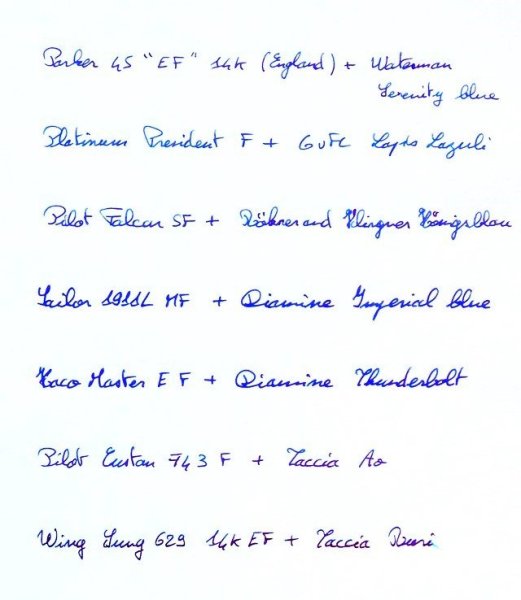 Parker 45 "EF" 14k (England) + Waterman
Serenity blue
Platinum President F + GvFC Lapis Lazuli
Pilot Falcon SF + Röhrer and Klingner Königsblau
Sailor 1911L MF + Diamine Imperial blue
Kaco Master EF + Diamine Thunderbolt
Pilot Custom 743 F + Taccia Ao
Wing Sung 629 14k EF + Taccia Ruri